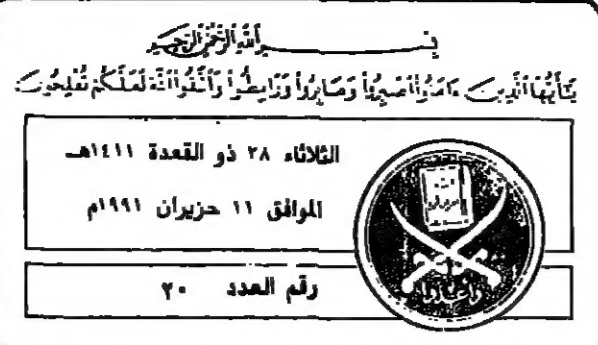 بِسْمِ اللَّهِ الرَّحْمَٰنِ الرَّحِيمِ
يَٰٓأَيُّهَا ٱلَّذِينَ ءَامَنُوا۟ ٱصْبِرُوا۟ وَصَابِرُوا۟ وَرَابِطُوا۟ وَٱتَّقُوا۟ ٱللَّهَ لَعَلَّكُمْ تُفْلِحُونَ
الثلاثاء ٢٨ ذو القعدة ١٤١١هـ
الموافق ١١ حزيران ١٩٩١م
رقم العدد ٢٠
وأعدوا